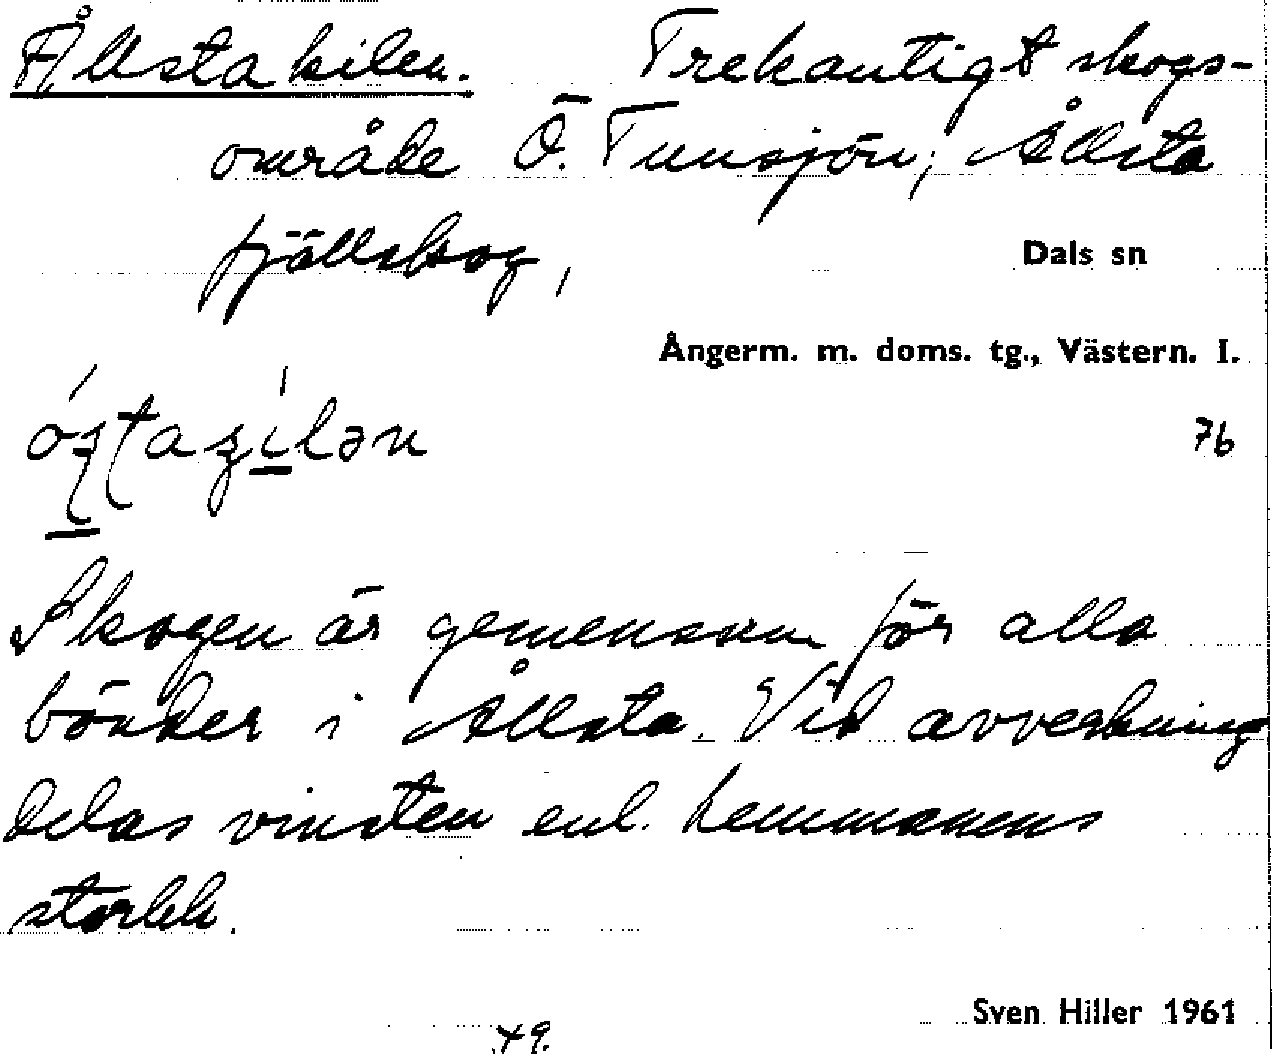 Ållsta kilen. Trekantigt skogs-
område Ö. Tunsjön, Ållsta
fjällskog,
Dals sn
Ångerm. m. doms. tg., Västern. I.
76
Skogen är gemensam för alla
bönder i Ållsta. Vid avverkning
delas vinsten enl. hemmanens
storlek.
Sven Hiller 1961